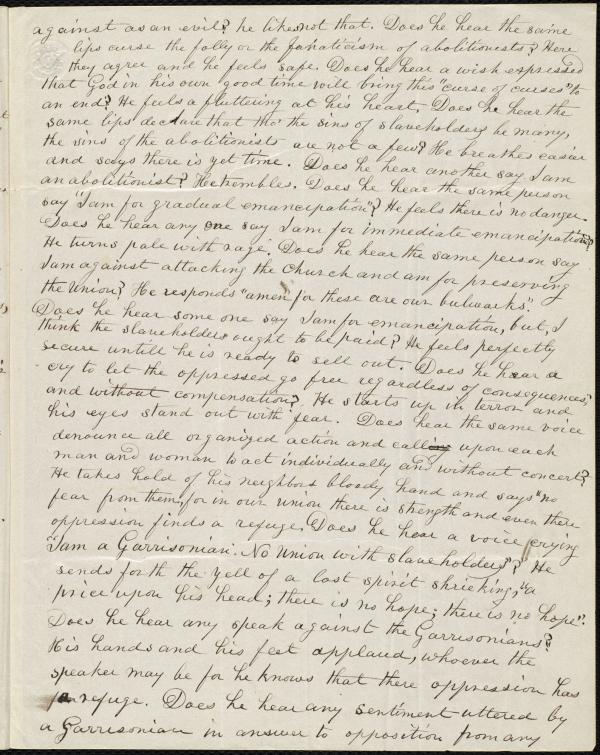 against as an evil? he likes not that. Does he hear the same
lips curse the folly or the fanaticism of abolitionists? Here
they agree and he feels safe. Does he hear a wish expressed
that God in his own good time will bring this "curse of curses" to
an end? He feels a fluttering at his heart. Does he hear the
same lips declare that tho' the sins of slaveholders be many,
the sins of the abolitionists are not a few? He breathes easier
and says there is yet time. Does he hear another say I am
an abolitionist? He trembles. Does he hear the same person
say "I am for gradual emancipation"? He feels there is no danger.
Does he hear any one say I am for immediate emancipation?
He turns pale with rage. Does he hear the same person say
I am against attacking the Church and am for preserving
the Union? He responds "amen for these are our bulwarks".
Does he hear some one say I am for emancipation, but, I
think the slaveholders ought to be paid? He feels perfectly
secure untill he is ready to sell out. Does he hear a
cry to let the oppressed go free regardless of consequences,
and without compensation? He starts up in terror and
his eyes stand out with fear. Does hear the same voice
denounce all organized action and call upon each
man and woman to act individually and without concert?
He takes hold of his neighbors bloody hand and says "no
fear from them, for in our union there is strength and even there
oppression finds a refuge. Does he hear a voice crying
"I am a Garrisonian. No Union with slaveholders"? He
sends forth the yell of a lost spirit shrieking, "a
price upon his head; there is no hope; there is no hope".
Does he hear any speak against the Garrisonians?
His hands and his feet applaud, whoever the
speaker may be for he knows that there oppression has
a refuge. Does he hear any sentiment uttered by
a Garrisonian in answer to opposition from any